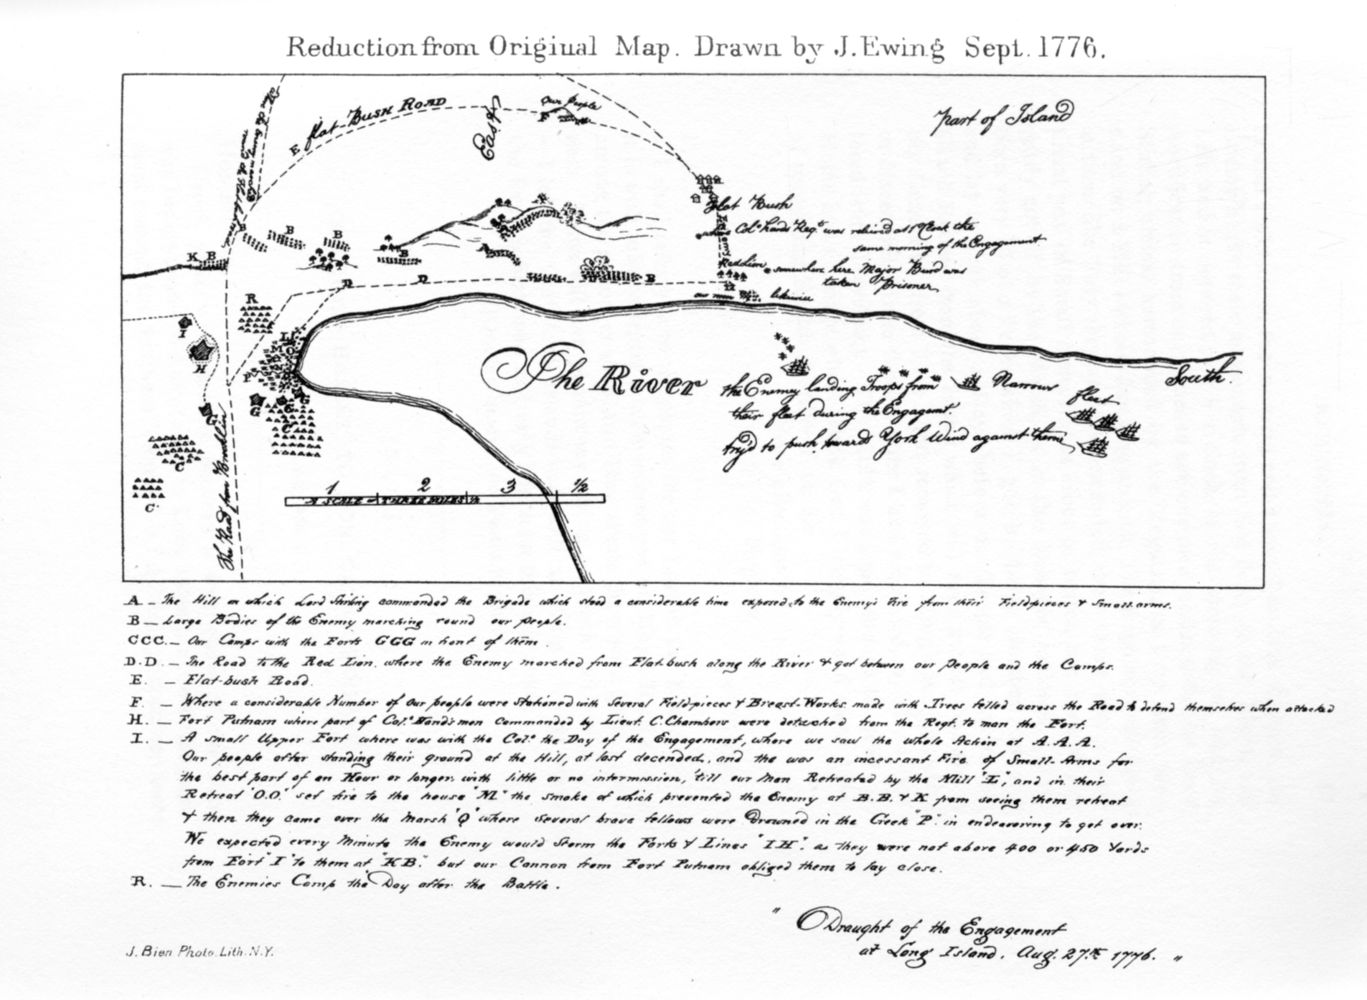 Reduction from Original Map. Drawn by J. Ewing Sept. 1776.
part of Island
Flat-Bush Road
E
East
Our people
F
Flat Bush
Col.º Hands Regt. was relieved at 1 Clock the
same morning of the Engagement
Red Lion
somewhere here Major Burd was
taken Prisoner
our men
likewise
K B
B
B
B
B
B
B
A
A
D
D
R
I
H
L
M
O
P
G
G
G
G
C
C
C
The River
the Enemy landing Troops from
their fleet during the Engagemt.
try'd to push towards York Wind against them
Narrows
fleet
South.
The Road from Brooklin
1 2 3 1/2
A SCALE of THREE MILES 1/2
A – The Hill on which Lord Stirling commanded the Brigade which stood a considerable time exposed to the Enemy's Fire from their Fieldpieces & Small-arms.
B – Large Bodies of the Enemy marching round our people.
CCC. – Our Camps with the Forts GGG in front of them.
D.D. – The Road to the Red Lion, where the Enemy marched from Flat-bush along the River & got between our people and the Camps.
E. – Flat-bush Road.
F. – Where a considerable Number of our people were Stationed with Several Field-pieces & Breast-Works made with Trees felled across the Road to defend themselves when attacked
H. – Fort Putnam where part of Col.º Hands men Commanded by Lieut. C. Chambers were detached from the Regt. to man the Fort.
I. – A Small Upper Fort where was with the Col.º the Day of the Engagement, where we saw the whole Action at A.A.A.
Our people after standing their ground at the Hill, at last decended, and the was an incessant Fire of Small-Arms for
the best part of an Hour or longer, with little or no intermission, 'till our Men Retreated by the Mill "L", and in their
Retreat "O.O." set fire to the house "M" the smoke of which prevented the Enemy at B.B. & K from seeing them retreat
& then they came over the Marsh "Q" where several brave fellows were Drowned in the Creek "P." in endeavoring to get over.
We expected every Minute the Enemy would Storm the Forts & Lines "I.H". as they were not above 400 or 450 Yards
from Fort "I" to them at "KB." but our Cannon from Fort Putnam obliged them to lay close.
R. – The Enemies Camp the Day after the Battle.
" Draught of the Engagement
at Long Island, Aug. 27th 1776. "
J. Bien Photo. Lith. N.Y.